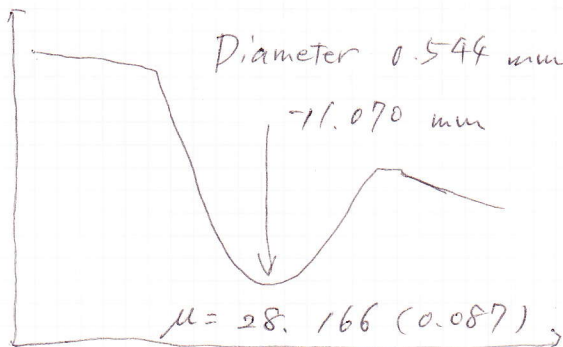 Diameter 0.544 mm
-11.070 mm
μ = 28.166 (0.087)